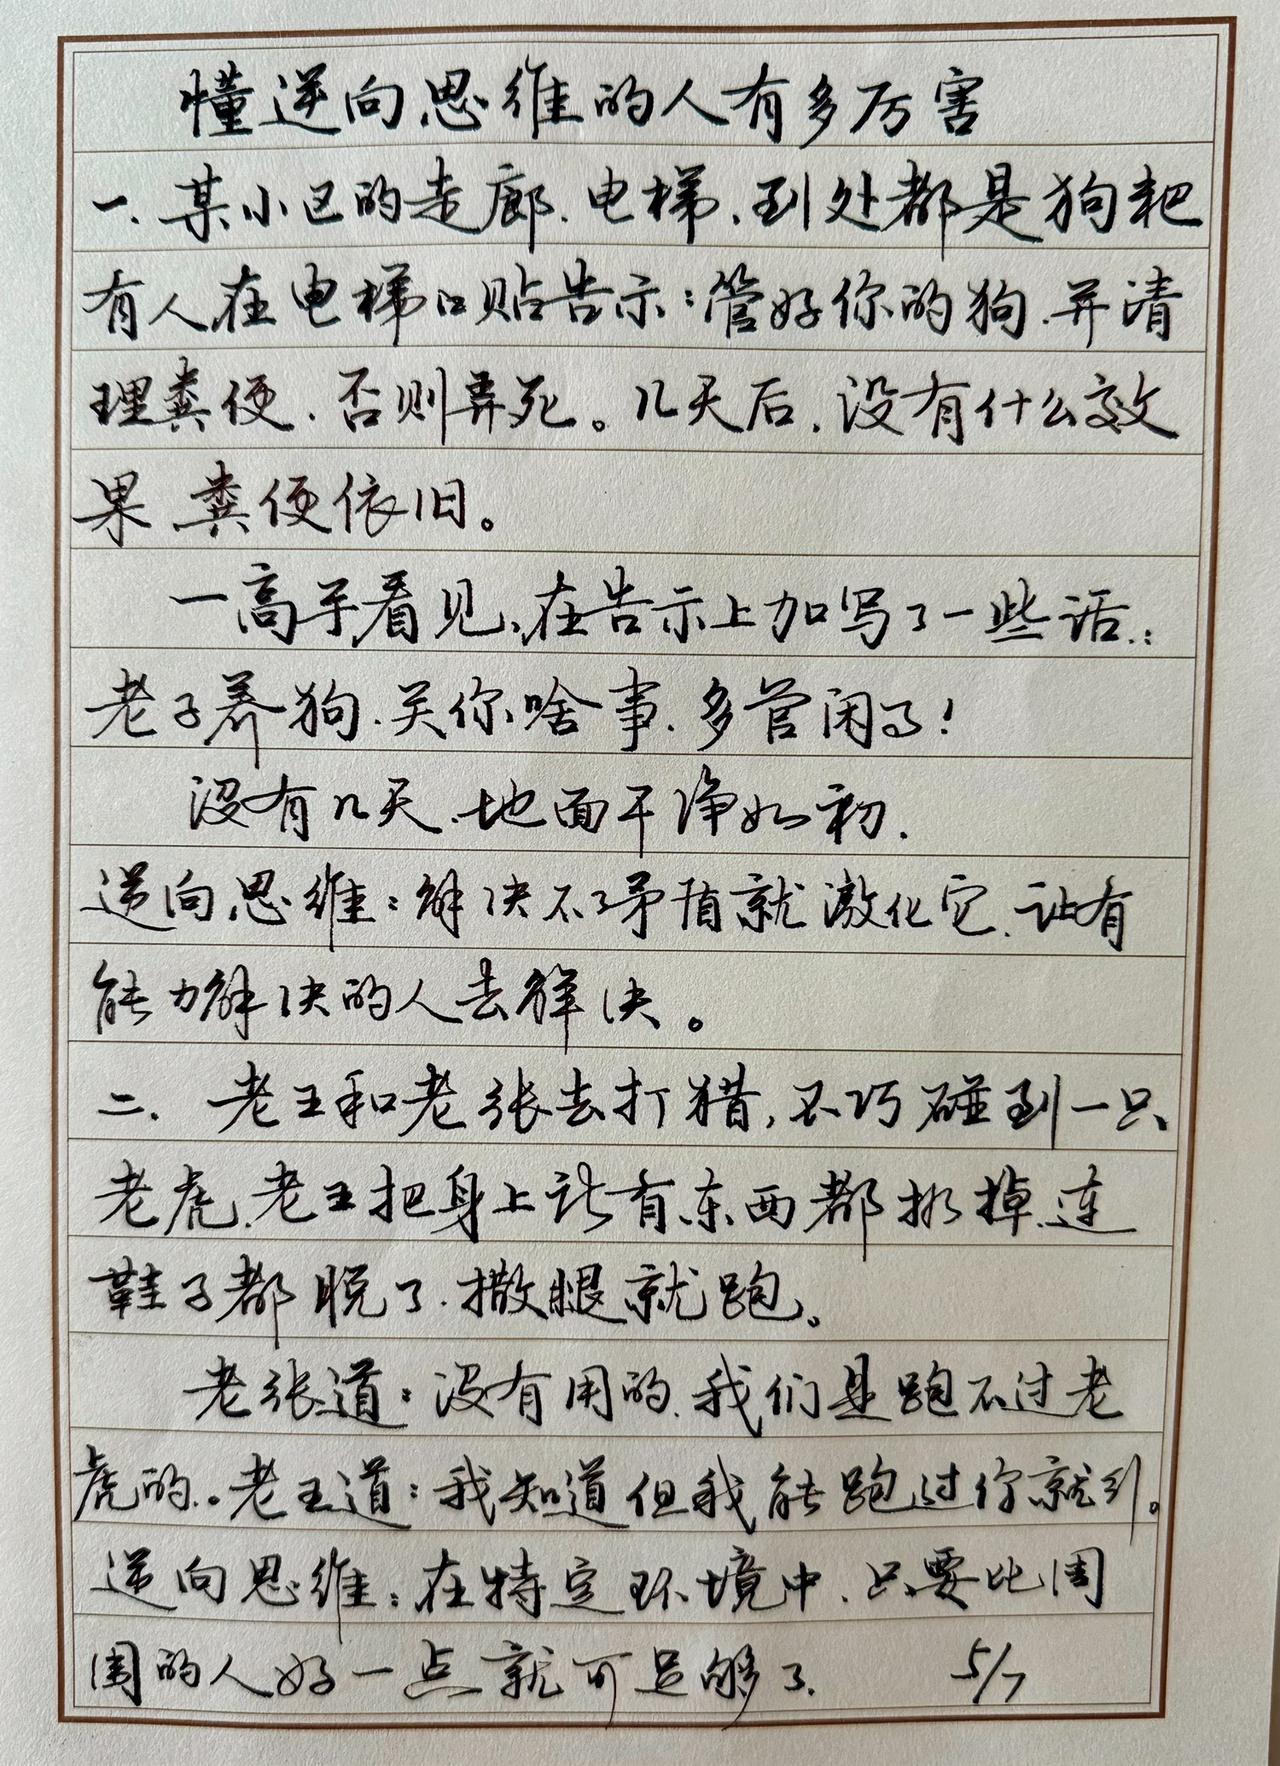 懂逆向思维的人有多厉害
一.某小区的走廊.电梯.到处都是狗粑
有人在电梯口贴告示:管好你的狗.并清
理粪便.否则弄死。几天后.没有什么效
果.粪便依旧。
一高手看见,在告示上加写了一些话.:
老子养狗.关你啥事.多管闲了!
没有几天.地面干净如初.
逆向思维:解决不了矛盾就激化它.让有
能力解决的人去解决。
二.老王和老张去打猎,不巧碰到一只
老虎.老王把身上所有东西都扔掉.连
鞋子都脱了.撒腿就跑。
老张道:没有用的.我们是跑不过老
虎的.。老王道:我知道但我能跑过你就行。
逆向思维:在特定环境中.只要比周
围的人好一点就可足够了. 5/7